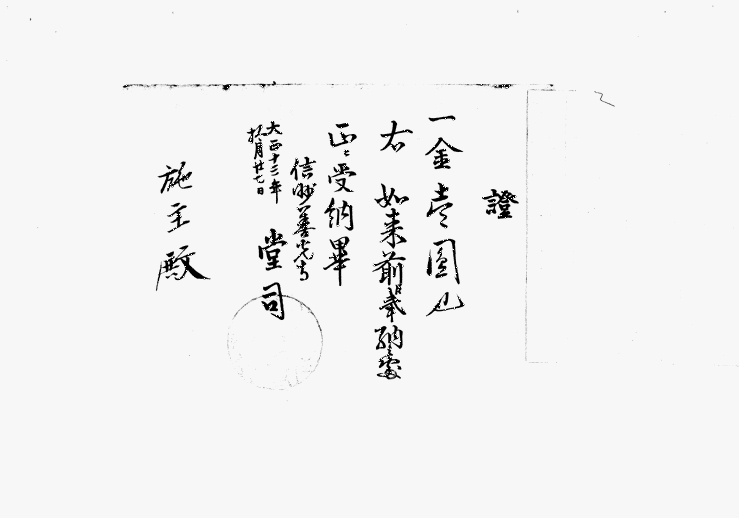 證
一金壱圓也
右 如来前奉納處
正ニ受納畢
信州善光寺
堂司
大正十三年
拾月廿七日
施主殿